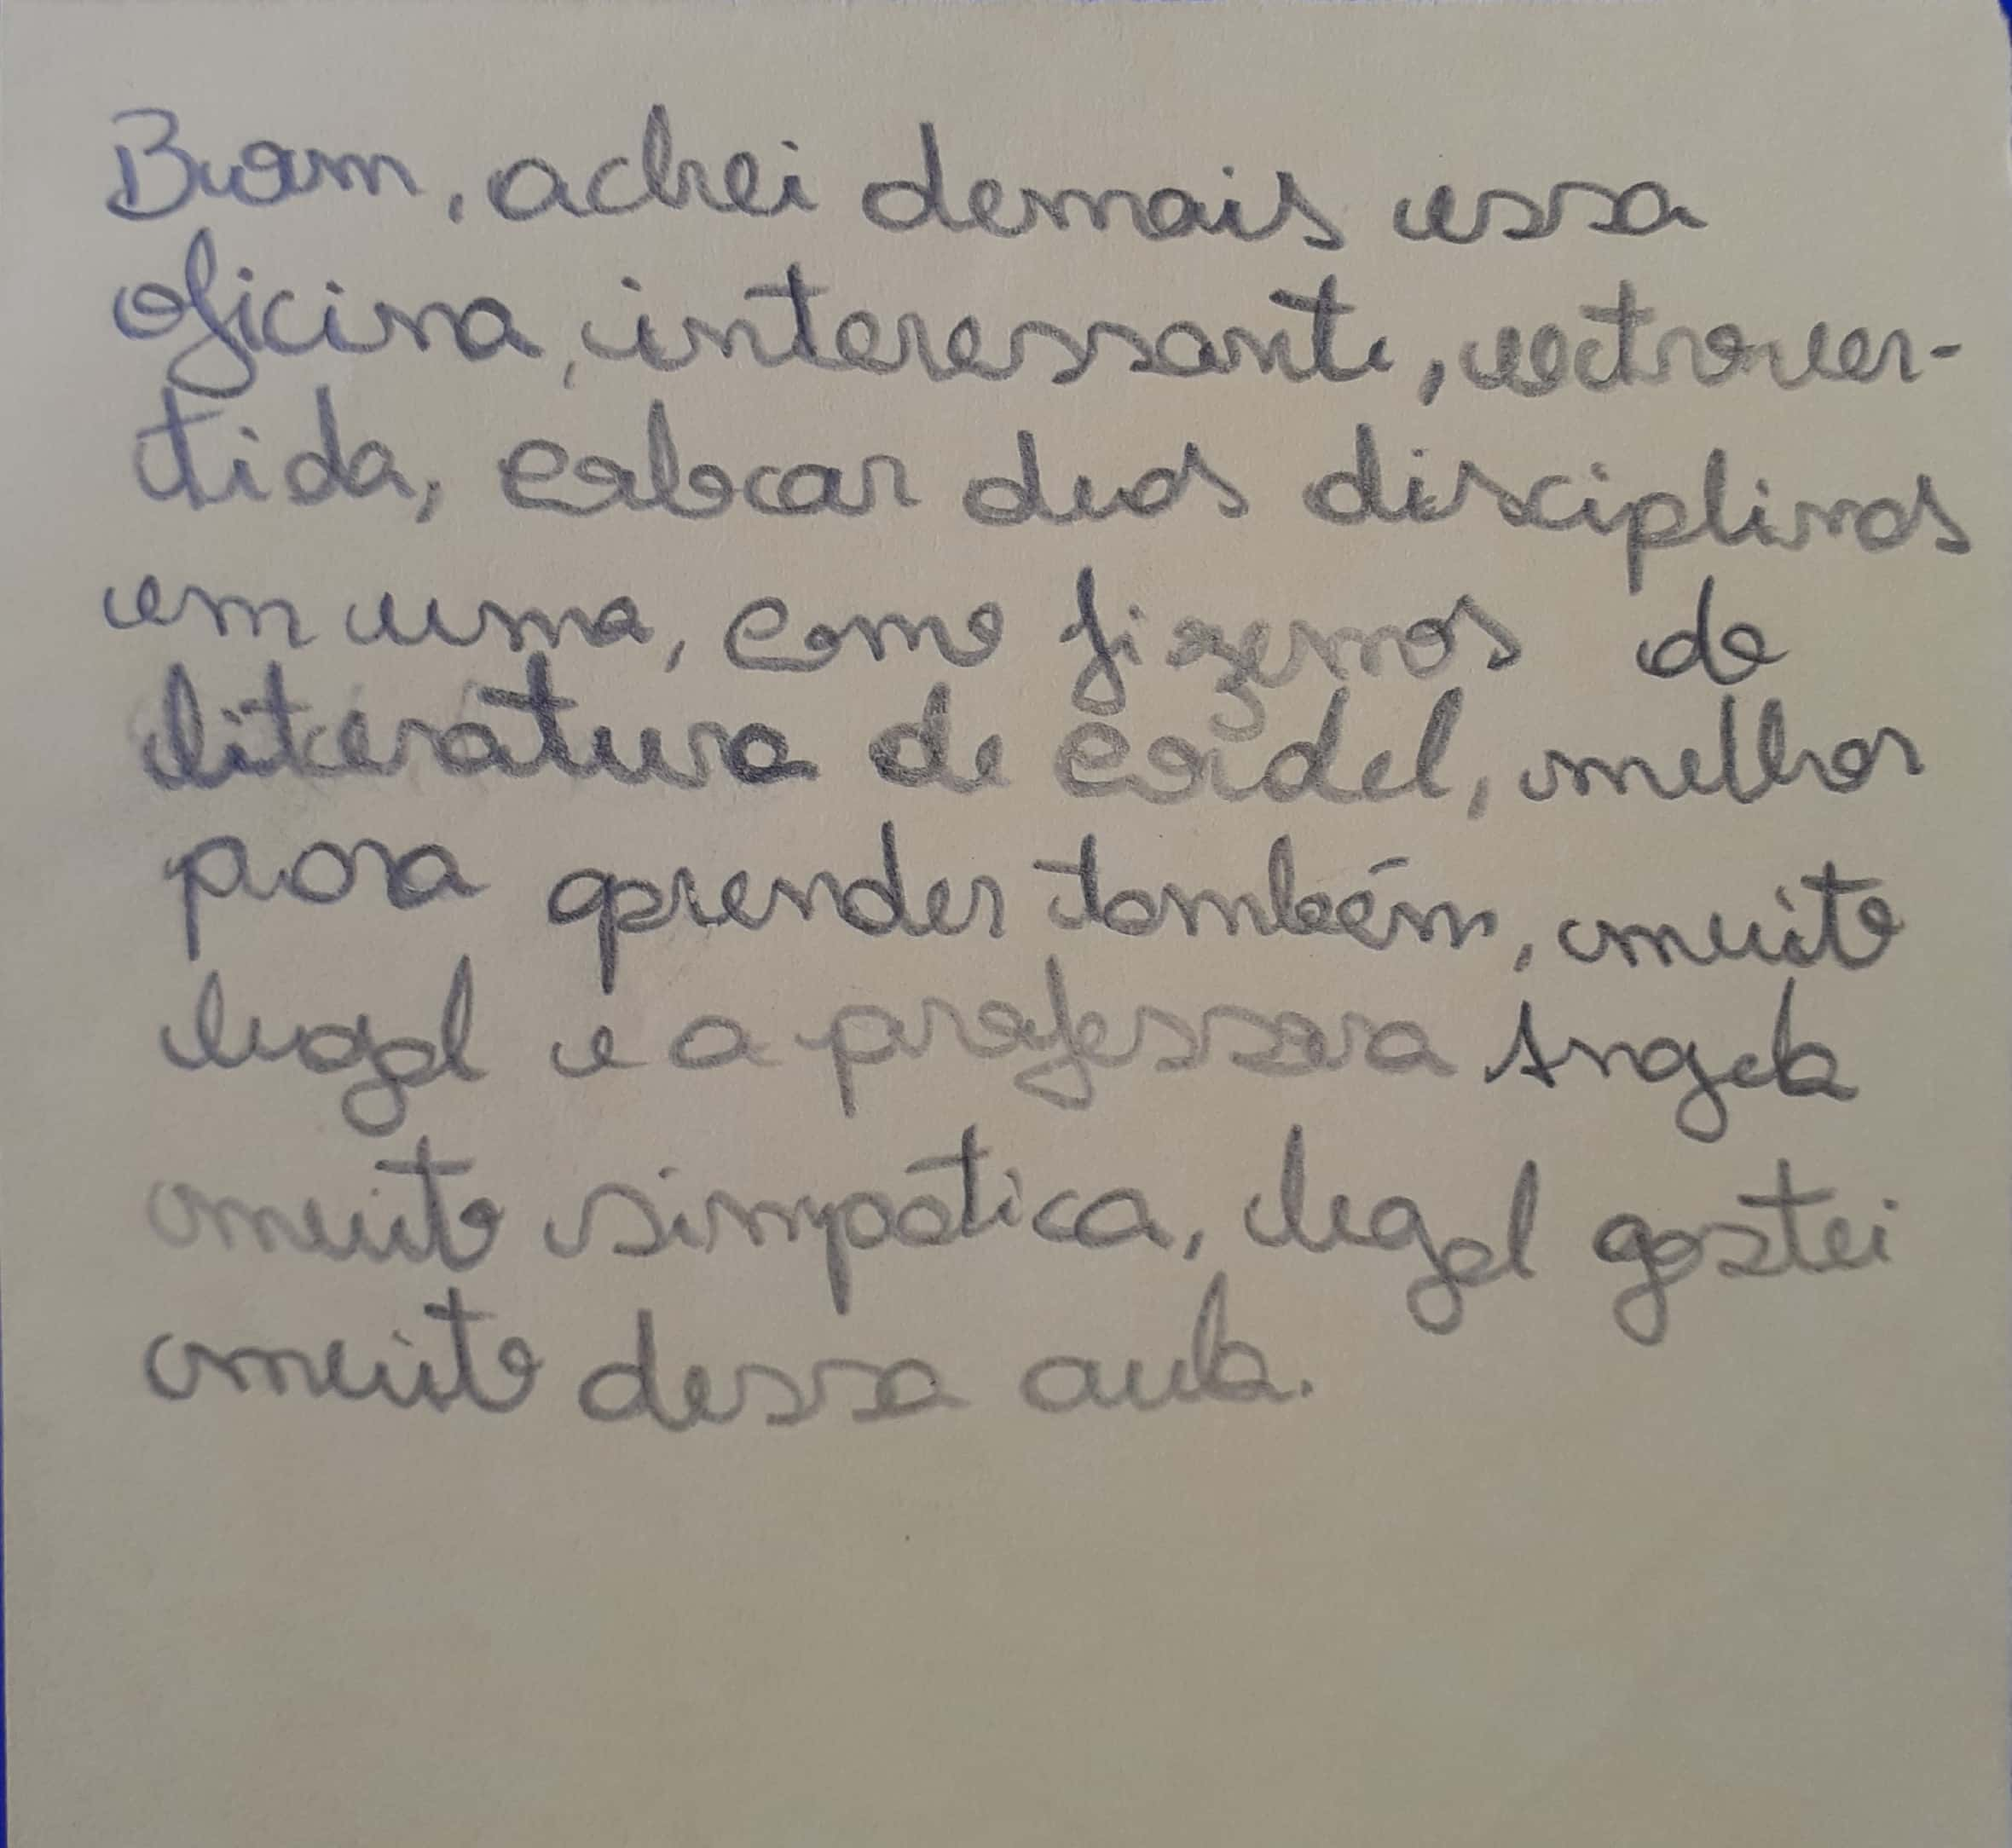 Bom, achei demais essa
oficina, interessante, extrover-
tida, colocar duas disciplinas
em uma, como fizemos de
literatura de cordel, melhor
para aprender também, muito
legal e a professora Angela
muito simpática, legal gostei
muito dessa aula.